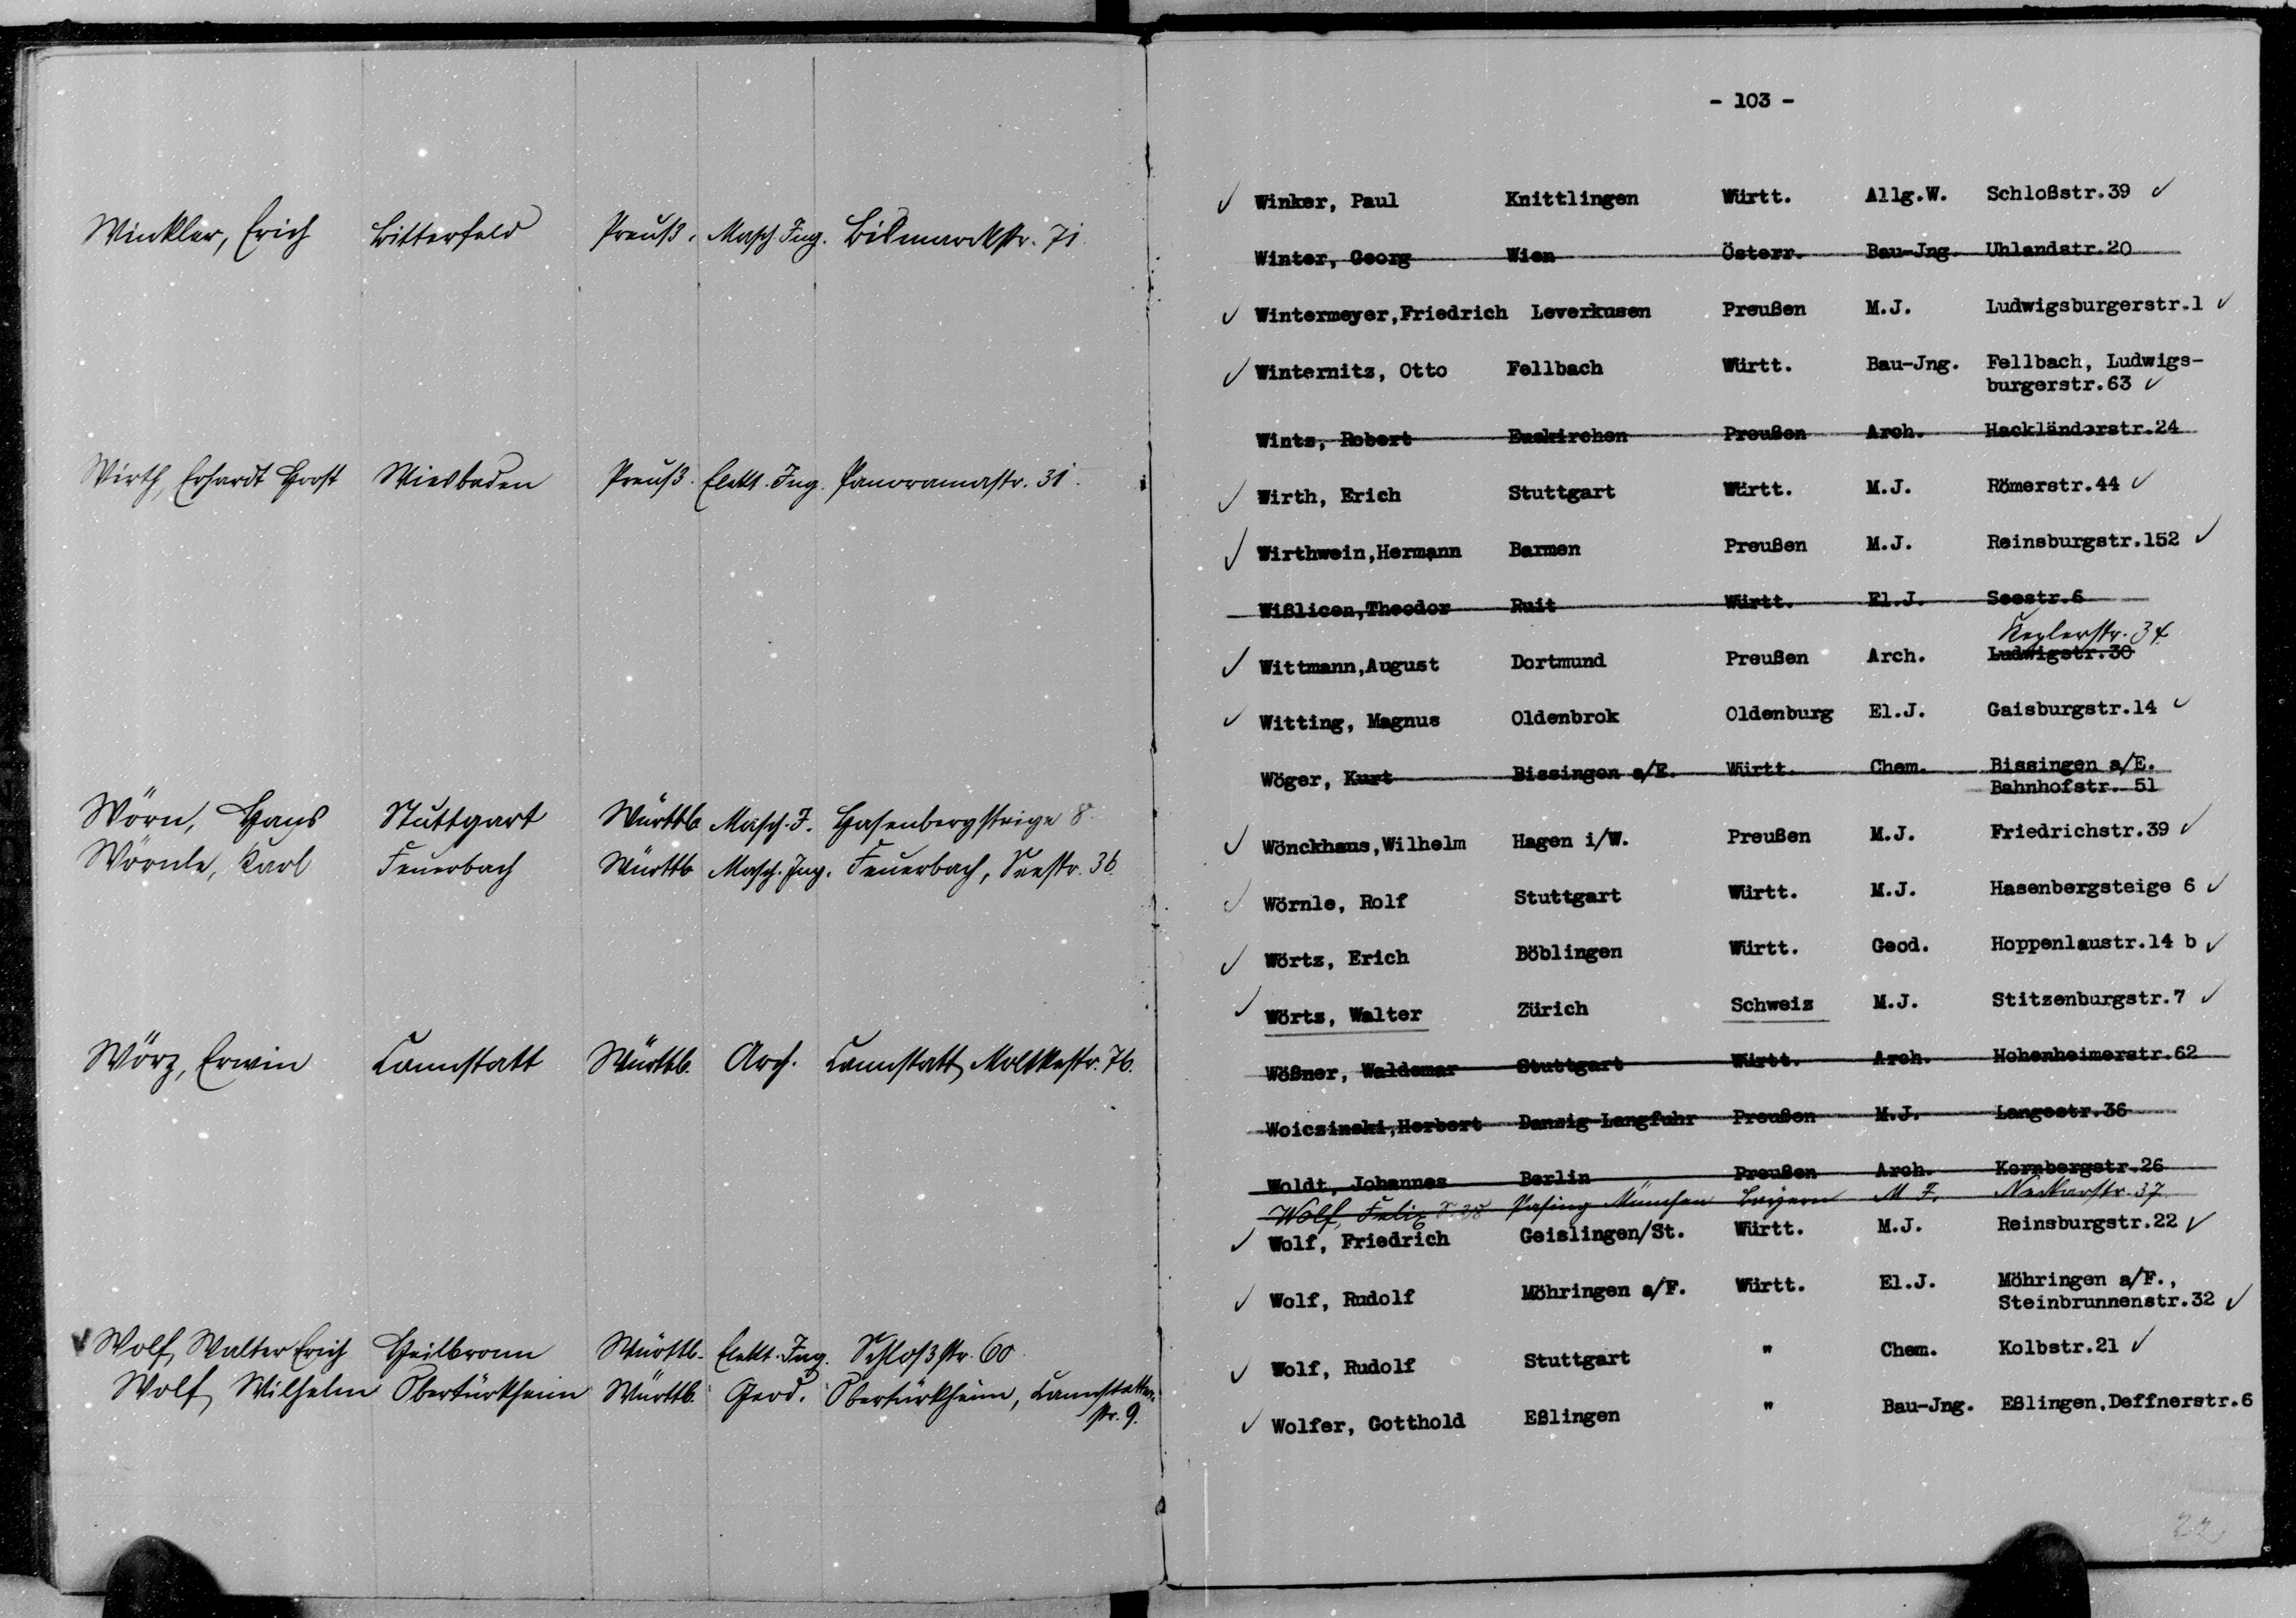 Winkler, Erich Bitterfeld Preuß. Masch. Ing. Bismarckstr. 71.
Wirth, Erhardt Horst Wiesbaden Preuß. Elekt. Ing. Panoramastr. 31.
Wörn, Hans Stuttgart Württb. Masch. I. Hasenbergsteige 8
Wörnle, Karl Feuerbach Württb. Masch. Ing. Feuerbach, Seestr. 36.
Wörz, Erwin Cannstatt Württb. Arch. Cannstatt, Moltkestr. 76.
Wolf, Walter Erich Heilbronn Württb. Elekt. Ing. Schloßstr. 60
Wolf, Wilhelm Obertürkheim Württb. Geod. Obertürkheim, Cannstatter-
str. 9.
- 103 -
Winker, Paul Knittlingen Württ. Allg.W. Schloßstr.39
Winter, Georg Wien Österr. Bau-Jng. Uhlandstr.20
Wintermeyer,Friedrich Leverkusen Preußen M.J. Ludwigsburgerstr.1
Winternitz, Otto Fellbach Württ. Bau-Jng. Fellbach, Ludwigs-
burgerstr.63
Wintz, Robert Euskirchen Preußen Arch. Hackländerstr.24
Wirth, Erich Stuttgart Württ. M.J. Römerstr.44
Wirthwein,Hermann Barmen Preußen M.J. Reinsburgstr.152
Wißlicen,Theodor Ruit Württ. El.J. Seestr.6
Keplerstr. 34
Wittmann,August Dortmund Preußen Arch. Ludwigstr.30
Witting, Magnus Oldenbrok Oldenburg El.J. Gaisburgstr.14
Wöger, Kurt Bissingen a/E. Württ. Chem. Bissingen a/E.
Bahnhofstr. 51
Wönckhaus,Wilhelm Hagen i/W. Preußen M.J. Friedrichstr.39
Wörnle, Rolf Stuttgart Württ. M.J. Hasenbergsteige 6
Wörtz, Erich Böblingen Württ. Geod. Hoppenlaustr.14 b
Wörtz, Walter Zürich Schweiz M.J. Stitzenburgstr.7
Wößner, Waldemar Stuttgart Württ. Arch. Hohenheimerstr.62
Woiczinski,Herbert Danzig-Langfuhr Preußen M.J. Langestr.36
Woldt, Johannes Berlin Preußen Arch. Kernbergstr.26
Wolf, Felix Pasing München Bayern M. I. Neckarstr. 37
Wolf, Friedrich Geislingen/St. Württ. M.J. Reinsburgstr.22
Wolf, Rudolf Möhringen a/F. Württ. El.J. Möhringen a/F.,
Steinbrunnenstr.32
Wolf, Rudolf Stuttgart " Chem. Kolbstr.21
Wolfer, Gotthold Eßlingen " Bau-Jng. Eßlingen,Deffnerstr.6